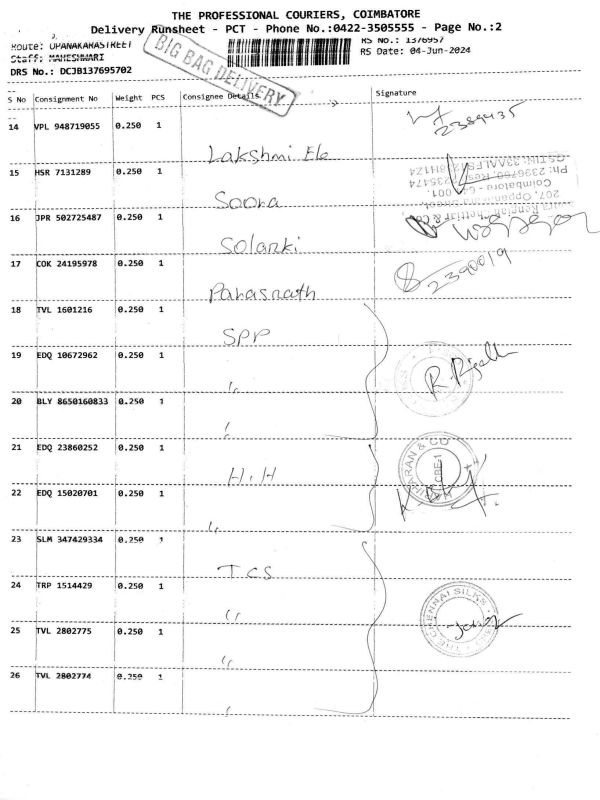 THE PROFESSIONAL COURIERS, COIMBATORE
Delivery Runsheet - PCT - Phone No.:0422-3505555 - Page No.:2
Route: OPANAKARASTREET
RS No.: 1376957
Staff: MAHESHWARI
RS Date: 04-Jun-2024
DRS No.: DCJB137695702
BIG BAG DELIVERY
S No Consignment No Weight PCS Consignee Details Signature
14 VPL 948719055 0.250 1 Lakshmi Ele
2389435
15 HSR 7131289 0.250 1 Soora
207, Oppanakara Street,
Coimbatore - 641 001.
16 JPR 502725487 0.250 1 Solanki
17 COK 24195978 0.250 1 Parasnath
2390019
18 TVL 1601216 0.250 1 SPP
19 EDQ 10672962 0.250 1 "
20 BLY 8650160833 0.250 1 "
21 EDQ 23860252 0.250 1 H.H
HARAN & CO
CBE-1
22 EDQ 15020701 0.250 1 "
23 SLM 347429334 0.250 1 TCS
24 TRP 1514429 0.250 1 "
THE CHENNAI SILKS
25 TVL 2802775 0.250 1 "
26 TVL 2802774 0.250 1 "